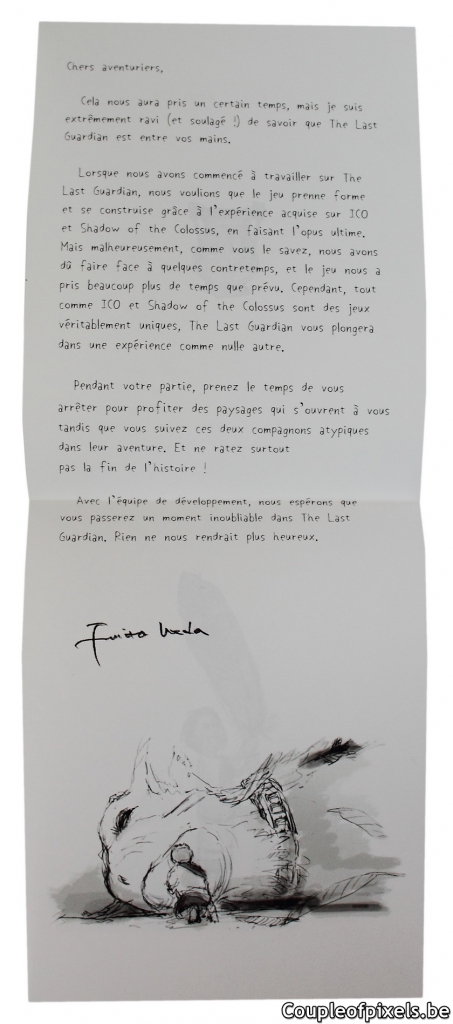 Chers aventuriers,
Cela nous aura pris un certain temps, mais je suis
extrêmement ravi (et soulagé !) de savoir que The Last
Guardian est entre vos mains.
Lorsque nous avons commencé à travailler sur The
Last Guardian, nous voulions que le jeu prenne forme
et se construise grâce à l'expérience acquise sur ICO
et Shadow of the Colossus, en faisant l'opus ultime.
Mais malheureusement, comme vous le savez, nous avons
dû faire face à quelques contretemps, et le jeu nous a
pris beaucoup plus de temps que prévu. Cependant, tout
comme ICO et Shadow of the Colossus sont des jeux
véritablement uniques, The Last Guardian vous plongera
dans une expérience comme nulle autre.
Pendant votre partie, prenez le temps de vous
arrêter pour profiter des paysages qui s'ouvrent à vous
tandis que vous suivez ces deux compagnons atypiques
dans leur aventure. Et ne ratez surtout
pas la fin de l'histoire !
Avec l'équipe de développement, nous espérons que
vous passerez un moment inoubliable dans The Last
Guardian. Rien ne nous rendrait plus heureux.
Fumito Ueda
Coupleofpixels.be